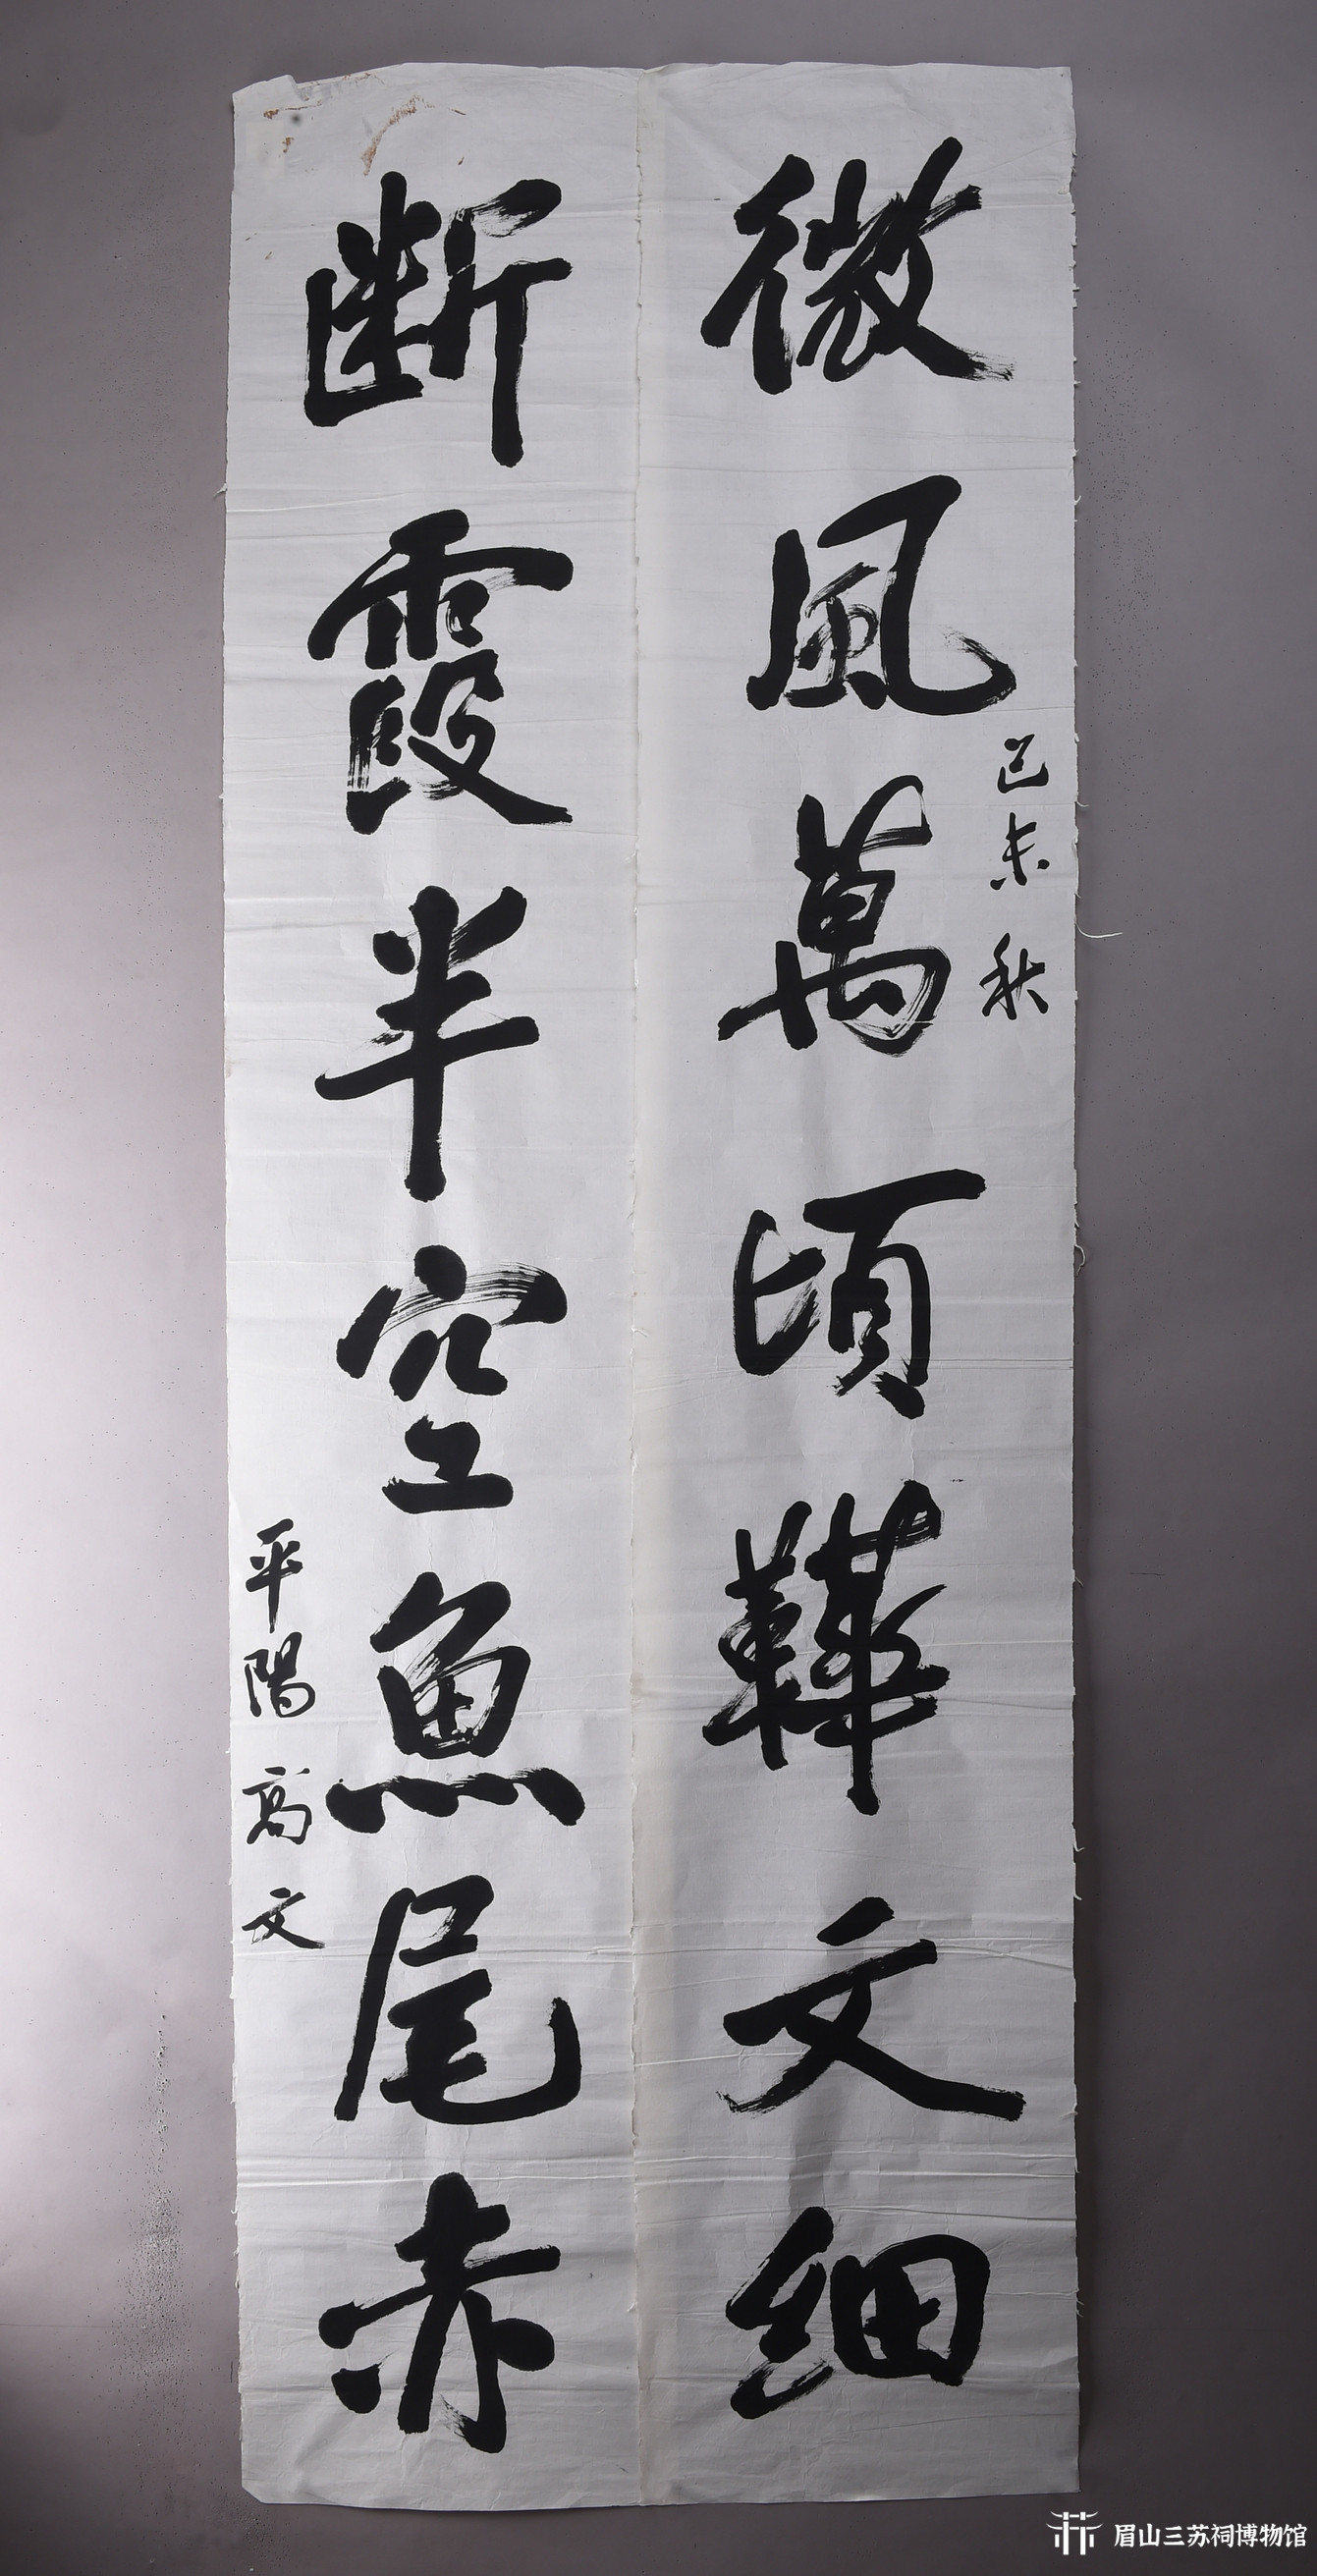 微風萬頃鞾文細
己未秋
断霞半空魚尾赤
平陽高文
眉山三苏祠博物馆